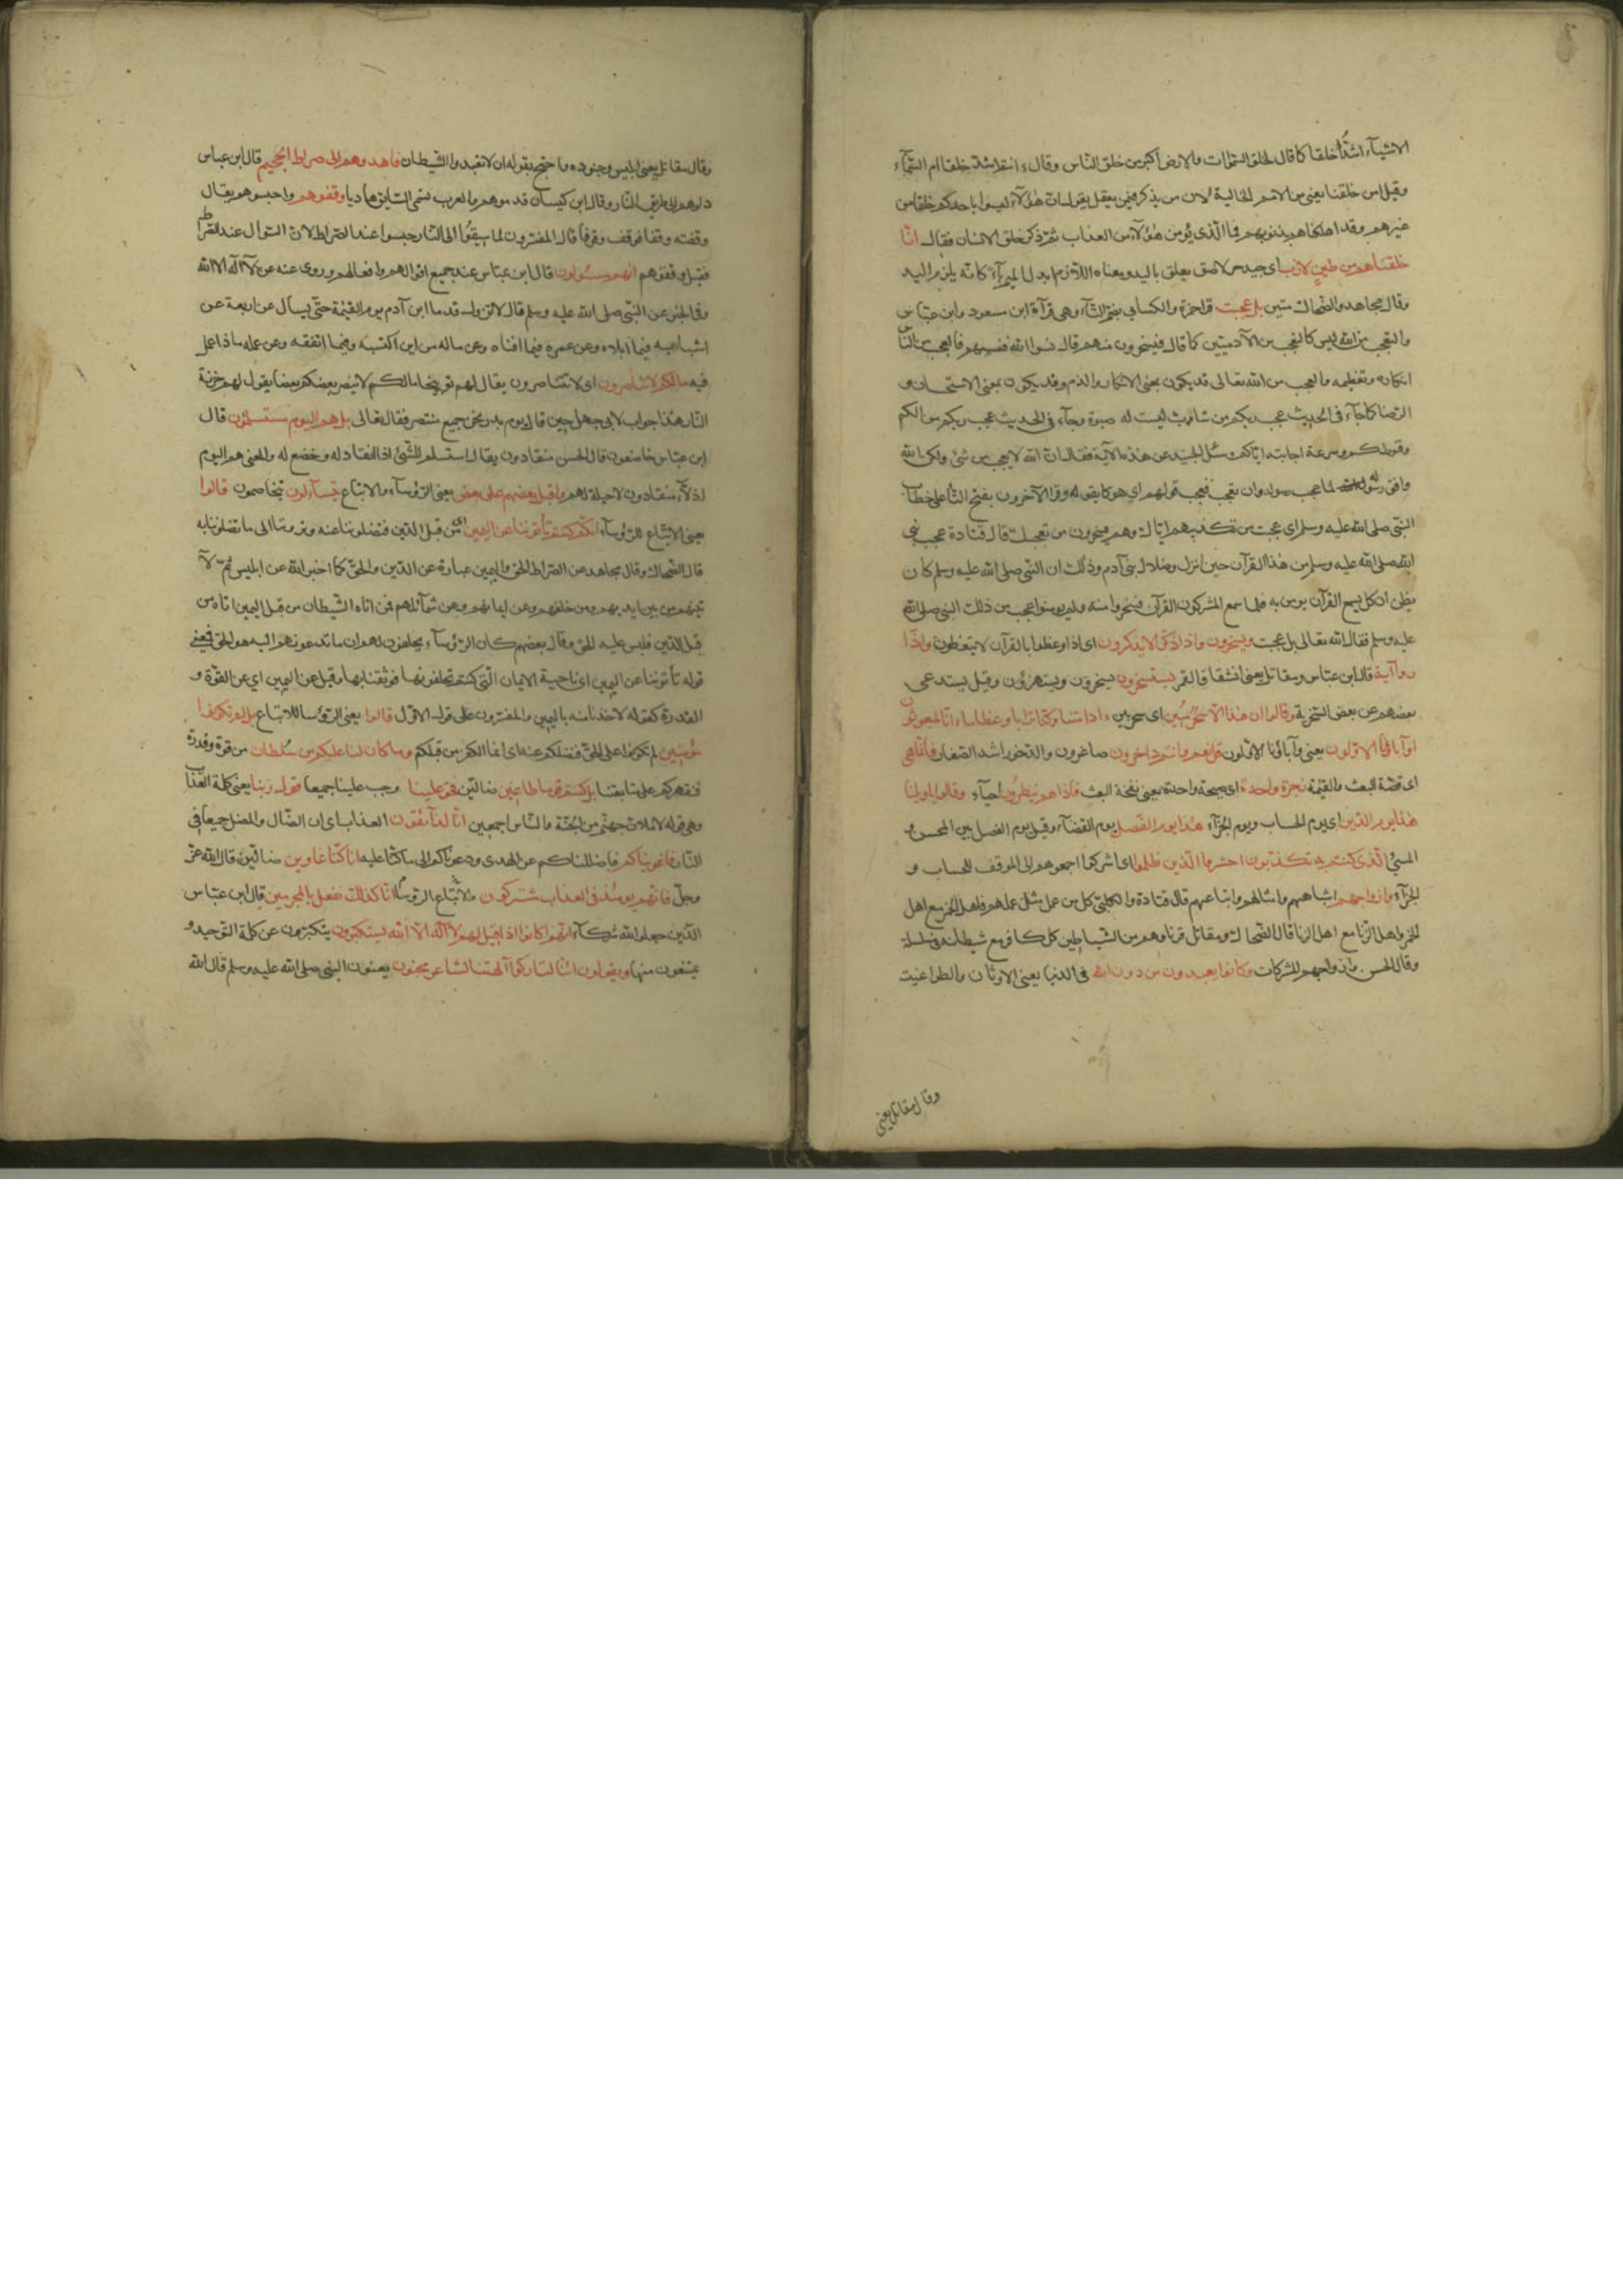 الاشياء اشد خلقا كما قال لخلق السموات والارض اكبر من خلق الناس وقال ءانتم اشد خلقا ام السماء
وقيل امن خلقنا يعني من الامم الخالية لان من يذكر فيمن يعقل يقول ان هؤلاء ليسوا باحكم خلقا من
غيرهم وقد اهلكناهم بذنوبهم فما الذي يؤمن هؤلاء من العذاب ثم ذكر خلق الانسان فقال انا
خلقناهم من طين لازب اي جيد حر لاصق يعلق باليد ومعناه اللازم ابدل الميم باء كانه يلزم اليد
وقال مجاهد والضحاك منتن بل عجبت قرا حمزة والكسائي بضم التاء وهي قراءة ابن مسعود وابن عباس
والتعجب من الله ليس كالتعجب من الآدميين كما قال فيسخرون منهم قال نسوا الله فنسيهم فالعجب من الناس
انكاره وتعظيمه والعجب من الله تعالى قد يكون بمعنى الانكار والذم وقد يكون بمعنى الاستحسان و
الرضا كما جاء في الحديث عجب ربكم من شاب ليست له صبوة وجاء في الحديث عجب ربكم من الكم
وقنوطكم وسرعة اجابته اياكم وسئل الجنيد عن هذه الآية فقال ان الله لا يعجب من شيء ولكن الله
وافق رسوله لما عجب رسوله وان تعجب فعجب قولهم اي هو كما يقوله وقرا الآخرون بفتح التا على خطاب
النبي صلى الله عليه وسلم اي عجبت من تكذيبهم اياك وهم يسخرون من تعجبك قال قتادة عجب نبي
الله صلى الله عليه وسلم من هذا القرآن حين انزل وضلال بني آدم وذلك ان النبي صلى الله عليه وسلم كان
يظن ان كل من يسمع القرآن يومن به فلما سمع المشركون القرآن فسخروا منه ولم يومنوا عجب من ذلك النبي صلى الله
عليه وسلم فقال الله تعالى بل عجبت ويسخرون واذا ذكروا لا يذكرون اى اذا وعظوا بالقرآن لا يتعظون واذا
رأوا آية قال ابن عباس ومقاتل يعني انشقاق القمر يستسخرون يسخرون ويستهزؤن وقيل يستدعى
بعضهم عن بعض السخرية وقالوا ان هذا الا سحر مبين اى سحر بين ءاذا متنا وكنا ترابا وعظاما ءانا لمبعوثون
اوآباؤنا الاولون يعني وآباؤنا الاولون قل نعم وانتم داخرون صاغرون والدخور اشد الصغار فانما هي
اى قصة البعث والقيمة زجرة واحدة اى صيحة واحدة يعني نفخة البعث فاذا هم ينظرون احياء وقالوا يا ويلنا
هذا يوم الدين اي يوم الحساب ويوم الجزاء هذا يوم الفصل يوم القضاء وقيل يوم الفصل بين المحسن و
المسئ الذي كنتم به تكذبون احشروا الذين ظلموا اى اشركوا اجمعوهم الى الموقف للحساب و
الجزاء وازواجهم اشباههم وامثالهم واتباعهم قال قتادة والكلبي كل من عمل مثل عملهم فاهل الخمر مع اهل
الخمر واهل الزنا مع اهل الزنا قال الضحاك ومقاتل قرناوهم من الشياطين كل كافر مع شيطانه في سلسلة
وقال الحسن وازواجهم المشركات وما كانوا يعبدون من دون الله في الدنيا يعني الاوثان والطواغيت
وقال مقاتل يعني
وقال مقاتل يعني ابليس وجنوده واحتج بقوله ان لا تعبدوا الشيطان فاهدوهم الى صراط الجحيم قال ابن عباس
دلوهم الى طريق النار وقال ابن كيسان قدموهم والعرب تسمى السابق هاديا وقفوهم واحبسوهم يقال
وقفته وقفا فوقف وقوفا قال المفسرون لما سيقوا الى النار حبسوا عند الصراط لان السوال عند الصراط
فقيل وقفوهم انهم مسئولون قال ابن عباس عند جميع اقوالهم وافعالهم وروى عنه عن لا اله الا الله
وفي الخبر عن النبي صلى الله عليه وسلم قال لا تزول قدما ابن آدم يوم القيمة حتى يسأل عن اربعة عن
شبابه فيما ابلاه وعن عمره فيما افناه وعن ماله من اين اكتسبه وفيما انفقه وعن عمله ماذا عمل
فيه مالكم لا تناصرون اى لا تتناصرون يقال لهم توبيخا مالكم لا ينصر بعضكم بعضا يقول لهم خزنة
النار هذا جواب لابي جهل حين قال يوم بدر نحن جميع منتصر فقال تعالى بل هم اليوم مستسلمون قال
ابن عباس خاضعون قال الحسن منقادون يقال استسلم للشئ اذا انقاد له وخضع له والمعنى هم اليوم
اذلاء منقادون لا حيلة لهم واقبل بعضهم على بعض يعني الرؤساء والاتباع يتساءلون يتخاصمون قالوا
يعني الاتباع للرؤساء انكم كنتم تأتوننا عن اليمين اى من قبل الدين فتضلوننا عنه وترومنا الى ما تضلوننا به
قال الضحاك وقال مجاهد عن الصراط الحق واليمين عبارة عن الدين والحق كما اخبر الله عن ابليس ثم لا
تينهم من بين ايديهم ومن خلفهم وعن ايمانهم وعن شمائلهم فمن اتاه الشيطان من قبل اليمين اتاه من
قبل الدين فلبس عليه الحق وقال بعضهم كان الرؤساء يحلفون لهم ان ما تدعونهم اليه هو الحق فمعنى
قوله تأتوننا عن اليمين اى ناحية الايمان التي كنتم تحلفونها فوثقنا بها وقيل عن اليمين اي عن القوة و
القدرة كقوله لاخذنا منه باليمين والمفسرون على قول الاول قالوا يعني الرؤسا للاتباع بل لم تكونوا
مؤمنين لم تكونوا على الحق فنضلكم عنه اى انما الكفر من قبلكم وما كان لنا عليكم من سلطان من قوة وقدرة
فنقهركم على متابعتنا بل كنتم قوما طاغين ضالين فحق علينا وجب علينا جميعا قول ربنا يعني كلمة العذاب
وهي قوله لاملان جهنم من الجنة والناس اجمعين انا لذآئقون العذاب اى ان الضال والمضل جميعا في
النار فاغويناكم فاضللناكم عن الهدى ودعوناكم الى ما كنا عليه انا كنا غاوين ضالين قال الله عز
وجل فانهم يومئذ في العذاب مشتركون والاتباع الرؤسا انا كذلك نفعل بالمجرمين قال ابن عباس
الذين جعلوا لله شركاء انهم كانوا اذا قيل لهم لا اله الا الله يستكبرون يتكبرون عن كلمة التوحيد و
يمتنعون منها ويقولون ائنا لتاركوا آلهتنا لشاعر مجنون يعنون النبي صلى الله عليه وسلم قال الله